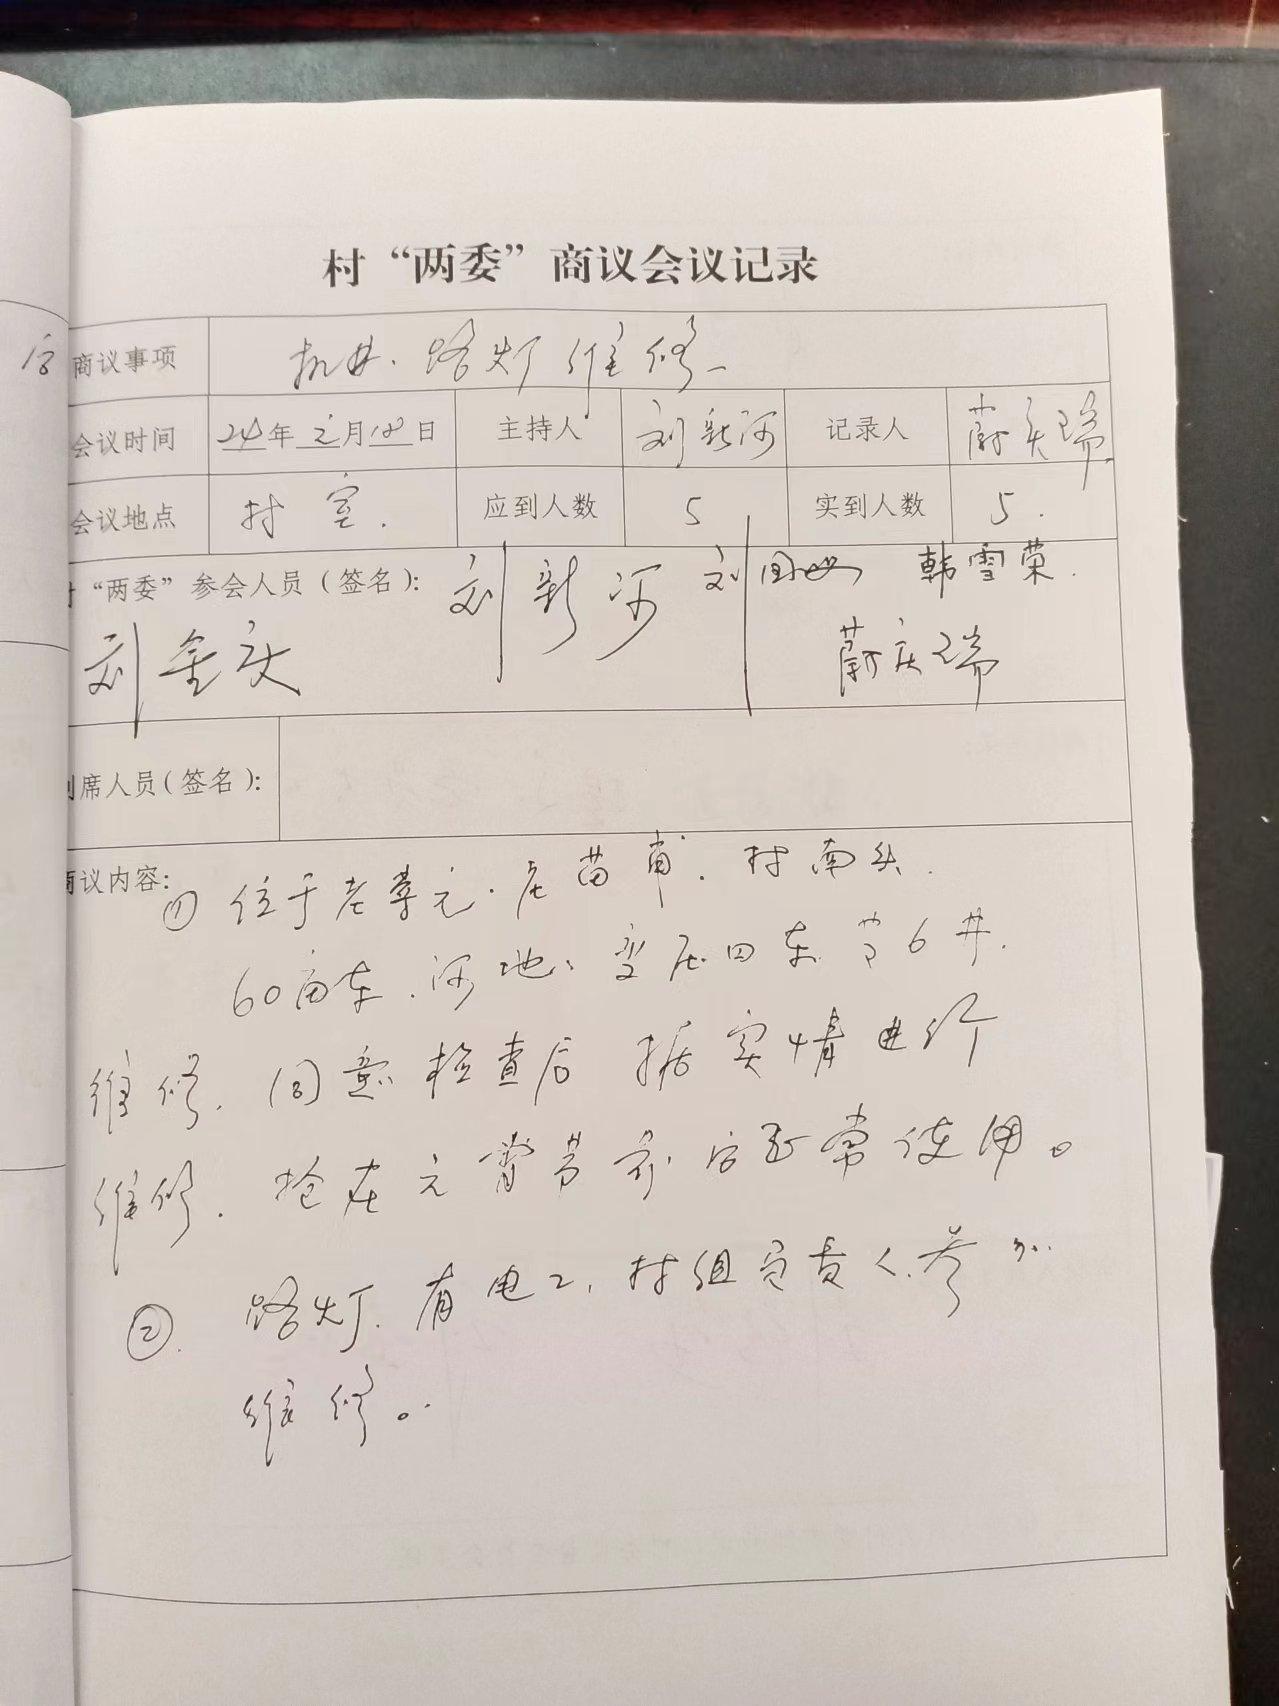 村“两委”商议会议记录
商议事项 机井.路灯维修
会议时间 24年元月18日 主持人 刘新河 记录人 蔚庆瑞
会议地点 村室. 应到人数 5 实到人数 5.
“两委”参会人员（签名）： 刘新河 刘国 韩雪荣.
刘金庆 蔚庆瑞
席人员（签名）：
议内容：
① 位于老 元. 苗 . 村南头.
60亩东.河地、变压 东 6井.
维修. 同意检查后 据实情进行
维修. 抢在元宵节前后正常使用。
② 路灯.有电工,村组负责人.参加
维修。